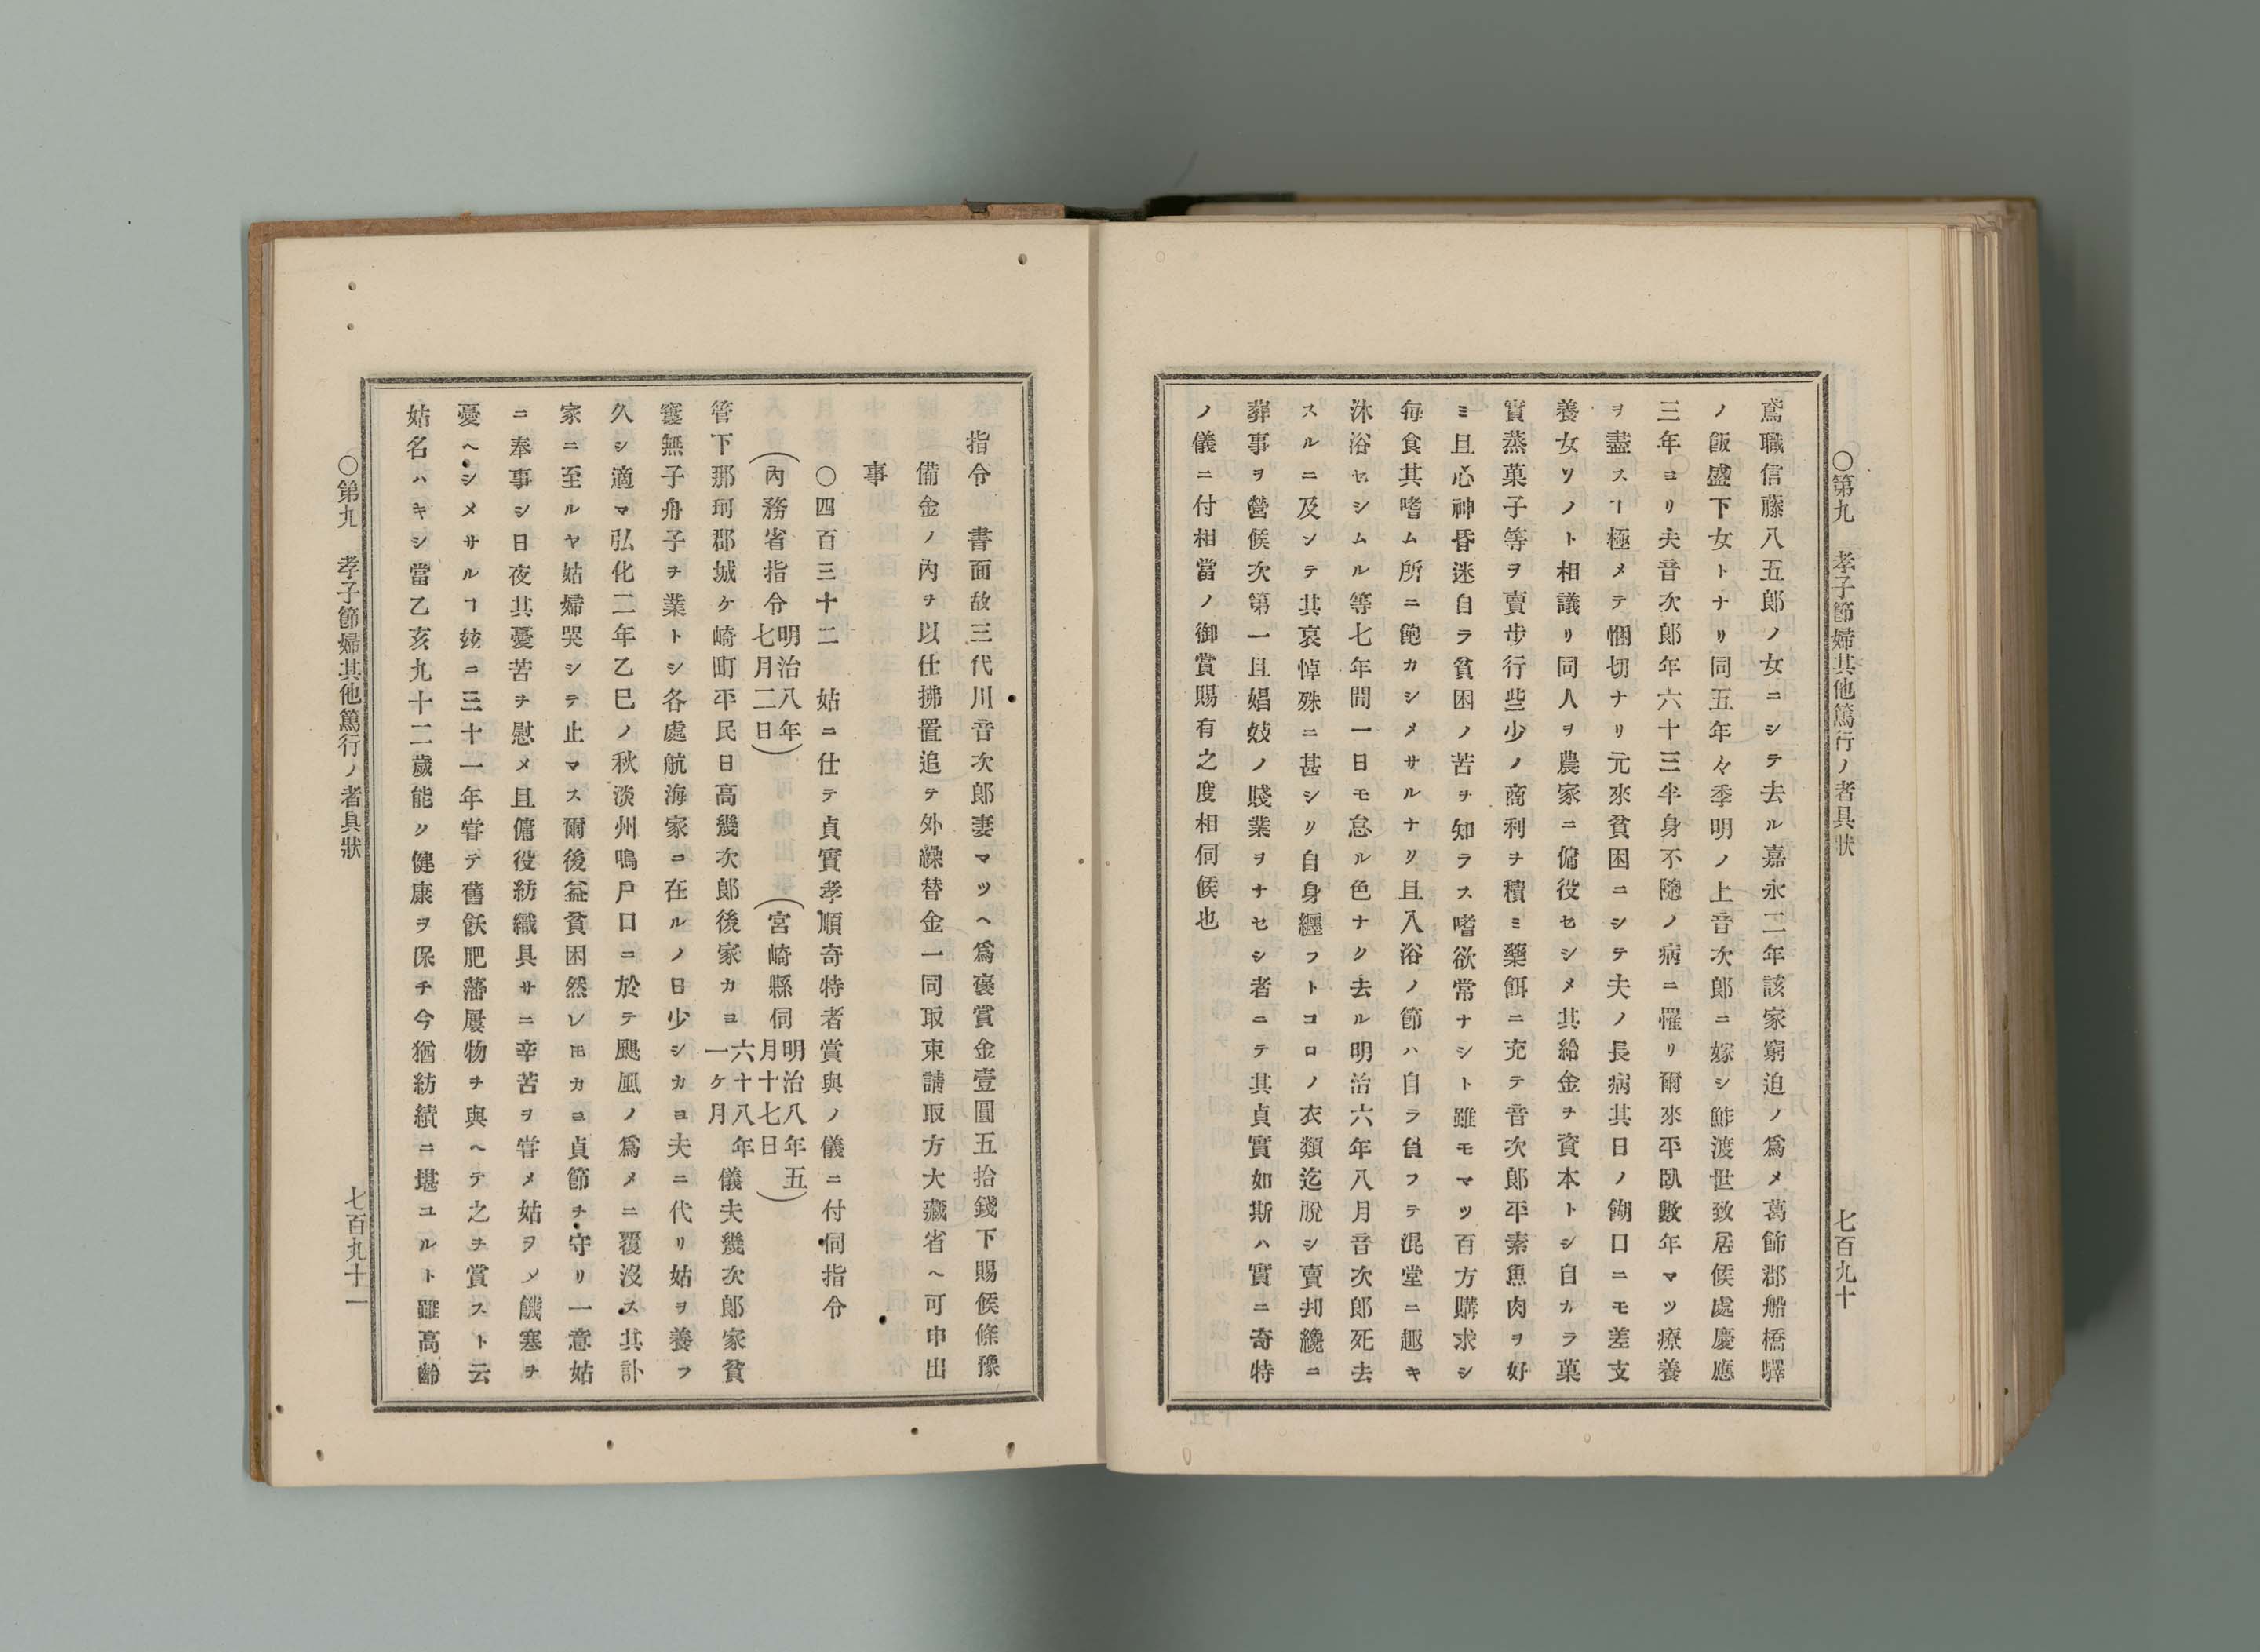 ○第九　孝子節婦其他篤行ノ者具狀　七百九十
鳶職信藤八五郎ノ女ニシテ去ル嘉永二年該家窮迫ノ爲メ葛飾郡船橋驛
ノ飯盛下女トナリ同五年々季明ノ上音次郎ニ嫁シ鮓渡世致居候處慶應
三年ヨリ夫音次郎年六十三半身不隨ノ病ニ罹リ爾來平臥數年マツ療養
ヲ盡スヿ極メテ悃切ナリ元來貧困ニシテ夫ノ長病其日ノ餬口ニモ差支
養女ソノト相議リ同人ヲ農家ニ傭役セシメ其給金ヲ資本トシ自カラ菓
實蒸菓子等ヲ賣步行些少ノ商利ヲ積ミ藥餌ニ充テ音次郎平素魚肉ヲ好
ミ且心神昏迷自ラ貧困ノ苦ヲ知ラス嗜欲常ナシト雖モマツ百方購求シ
每食其嗜ム所ニ飽カシメサルナリ且入浴ノ節ハ自ラ負フテ混堂ニ趣キ
沐浴セシムル等七年間一日モ怠ル色ナク去ル明治六年八月音次郎死去
スルニ及ンテ其哀悼殊ニ甚シリ自身纒フトコロノ衣類迄脫シ賣却纔ニ
葬事ヲ營候次第一且娼妓ノ賤業ヲナセシ者ニテ其貞實如斯ハ實ニ奇特
ノ儀ニ付相當ノ御賞賜有之度相伺候也
指令　書面故三代川音次郎妻マツヘ爲褒賞金壹圓五拾錢下賜候條豫
備金ノ內ヲ以仕拂置追テ外繰替金一同取束請取方大藏省ヘ可申出
事
○四百三十二　姑ニ仕テ貞實孝順奇特者賞與ノ儀ニ付伺指令
（內務省指令明治八年七月二日）　（宮崎縣伺明治八年五月十七日）
管下那珂郡城ケ崎町平民日高幾次郎後家カヨ六十八年一ケ月儀夫幾次郎家貧
窶無子舟子ヲ業トシ各處航海家ニ在ルノ日少シカヨ夫ニ代リ姑ヲ養フ
久シ適マ弘化二年乙巳ノ秋淡州鳴戶口ニ於テ颶風ノ爲メニ覆沒ス其訃
家ニ至ルヤ姑婦哭シテ止マス爾後益貧困然レ𪜈カヨ貞節ヲ守リ一意姑
ニ奉事シ日夜其憂苦ヲ慰メ且傭役紡織具サニ辛苦ヲ甞メ姑ヲメ饑寒ヲ
憂ヘシメサルヿ玆ニ三十一年甞テ舊飫肥藩屢物ヲ與ヘテ之ヲ賞スト云
姑名ハキシ當乙亥九十二歲能ク健康ヲ保チ今猶紡績ニ堪ユルト雖高齡
○第九　孝子節婦其他篤行ノ者具狀　七百九十一